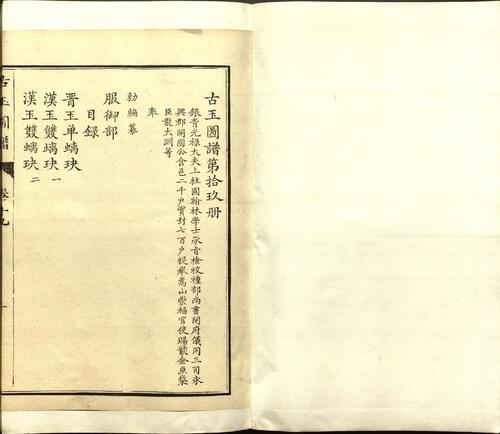 古玉圖譜第拾玖册
銀青光祿大夫上柱國翰林學士承旨檢校禮部尚書開府儀同三司永
興郡開國公食邑二千戶實封七百戶提舉嵩山崇福宮使賜紫金魚袋
臣龍大淵等
奉
勑編纂
服御部
目录
晉玉单螭玦
漢玉雙螭玦一
漢玉雙螭玦二
古玉圖譜
卷十九
一